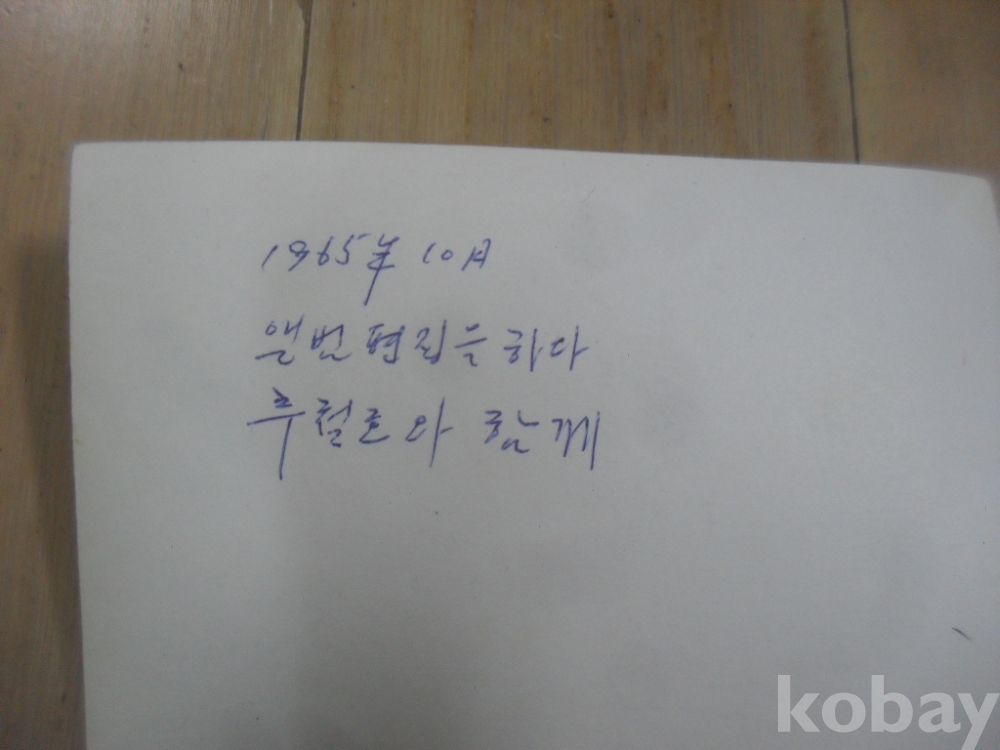 1965年 10月
앨번편집을 하다
추철호와 함께
kobay